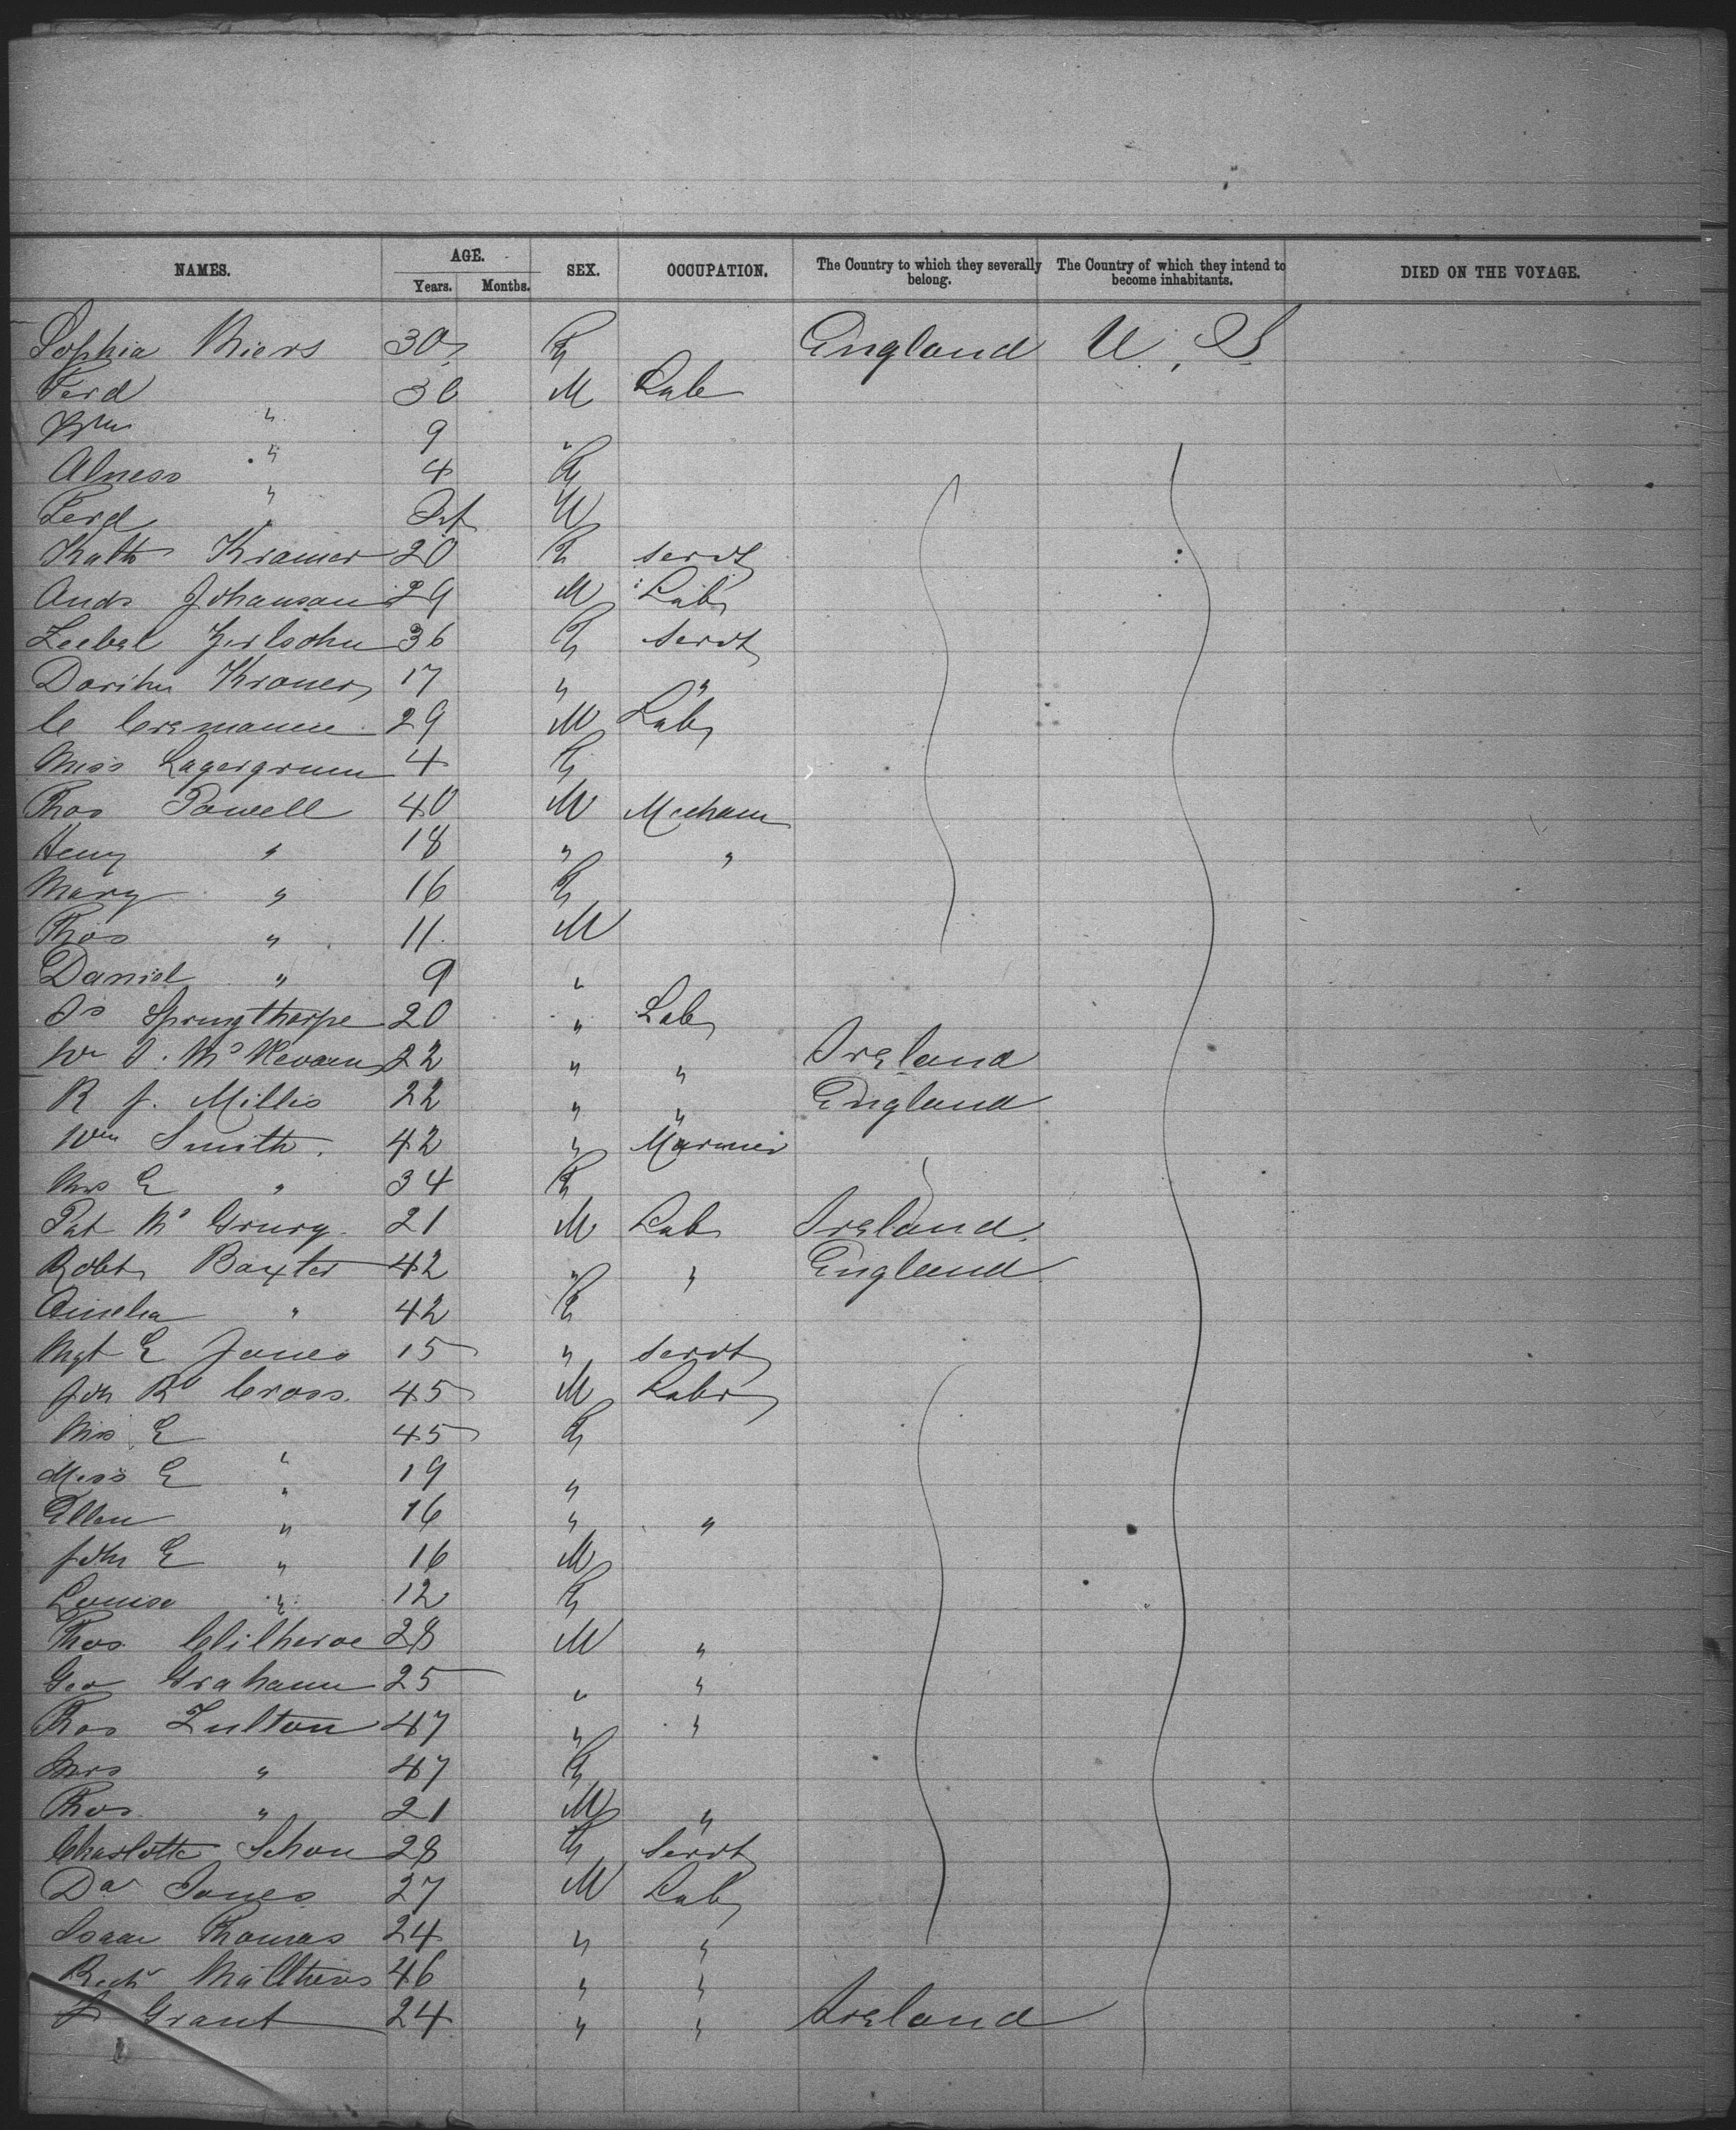 NAMES. AGE. SEX. OCCUPATION. The Country to which they severally belong. The Country of which they intend to become inhabitants. DIED ON THE VOYAGE.
Years. Months.
Sophia Miers 30 F England U.S
Ferd 30 M Lab
Wm " 9 "
Alness " 4 F
Ferd " Inf M
Kath Kramer 20 F servt
Andr Johanson 29 M Lab
36 F servt
Kroner 17 " "
C 29 M Lab
Miss Lagergrun 4 F
Thos Powell 40 M Mechan
Henry " 18 " "
Mary " 16 F
Thos " 11 M
Daniel " 9 "
Js Springthorpe 20 " Lab
Wm J. 22 " " Ireland
R J. Millis 22 " " England
Wm Smith. 42 " Mariner
Mrs E " 34 F
Pat 21 M Lab Ireland
Robt Baxter 42 " " England
Amelia " 42 F
Mgt E Jones 15 " servt
Jon Rd Cross. 45 M Labr
Mrs E " 45 F
Miss E " 19 "
Ellen " 16 " "
John E " 16 M
Louisa " 12 F
Thos Clitheroe 28 M "
Geo Grahamn 25 " "
Thos Fulton 47 " "
Mrs " 47 F
Thos " 21 M "
Charlotte Schon 28 F Servt
Dav Jones 27 M Lab
Isaac Thomas 24 " "
Richd Matthews 46 " "
Grant 24 " " Ireland